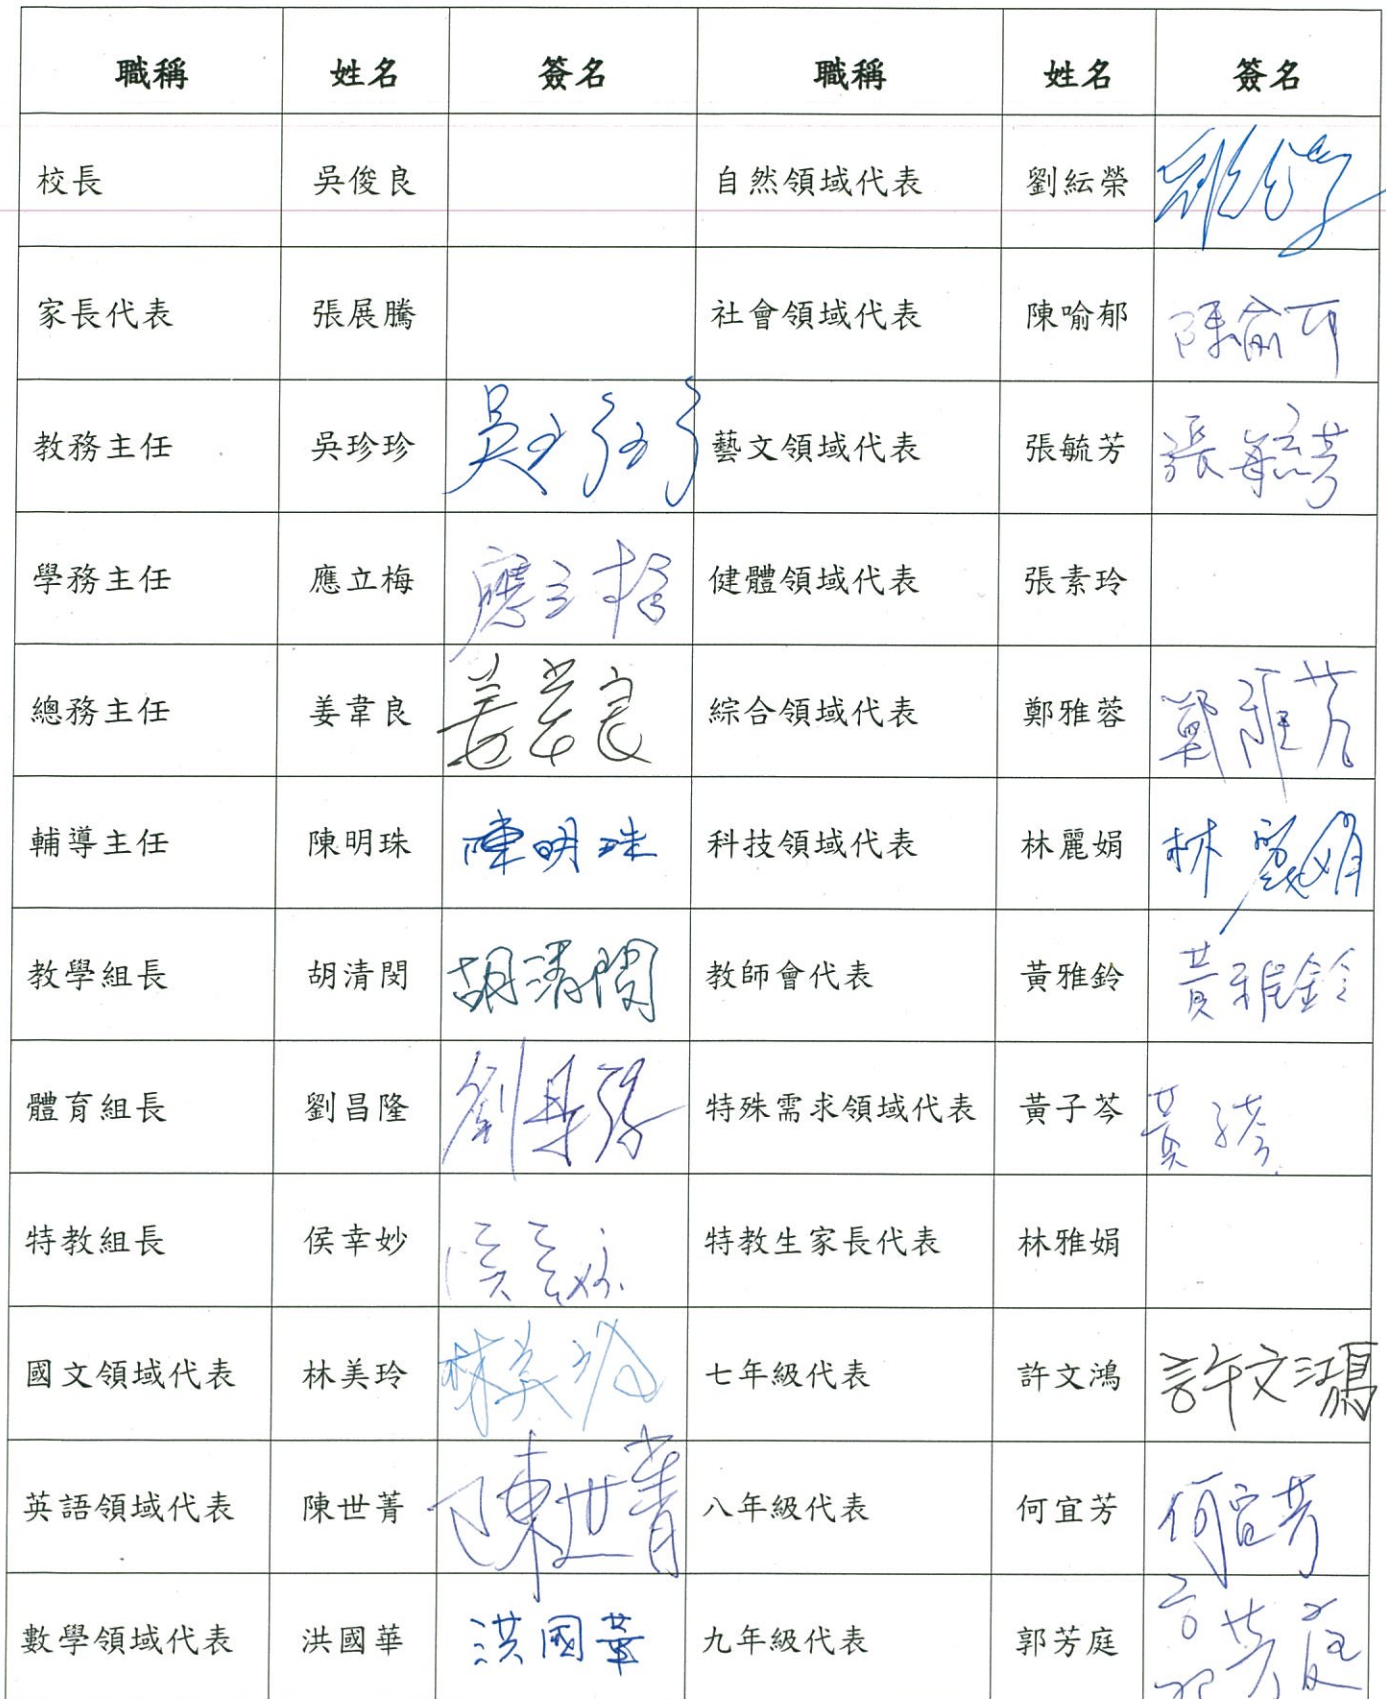 職稱 姓名 簽名 職稱 姓名 簽名
校長 吳俊良 自然領域代表 劉紜榮
家長代表 張展騰 社會領域代表 陳喻郁 陳喻郁
教務主任 吳珍珍 吳珍珍 藝文領域代表 張毓芳 張毓芳
學務主任 應立梅 應立梅 健體領域代表 張素玲
總務主任 姜韋良 姜韋良 綜合領域代表 鄭雅蓉 鄭雅蓉
輔導主任 陳明珠 陳明珠 科技領域代表 林麗娟 林麗娟
教學組長 胡清閔 胡清閔 教師會代表 黃雅鈴 黃雅鈴
體育組長 劉昌隆 劉昌隆 特殊需求領域代表 黃子芩 黃子芩
特教組長 侯幸妙 侯幸妙 特教生家長代表 林雅娟
國文領域代表 林美玲 林美玲 七年級代表 許文鴻 許文鴻
英語領域代表 陳世菁 陳世菁 八年級代表 何宜芳 何宜芳
數學領域代表 洪國華 洪國華 九年級代表 郭芳庭 郭芳庭